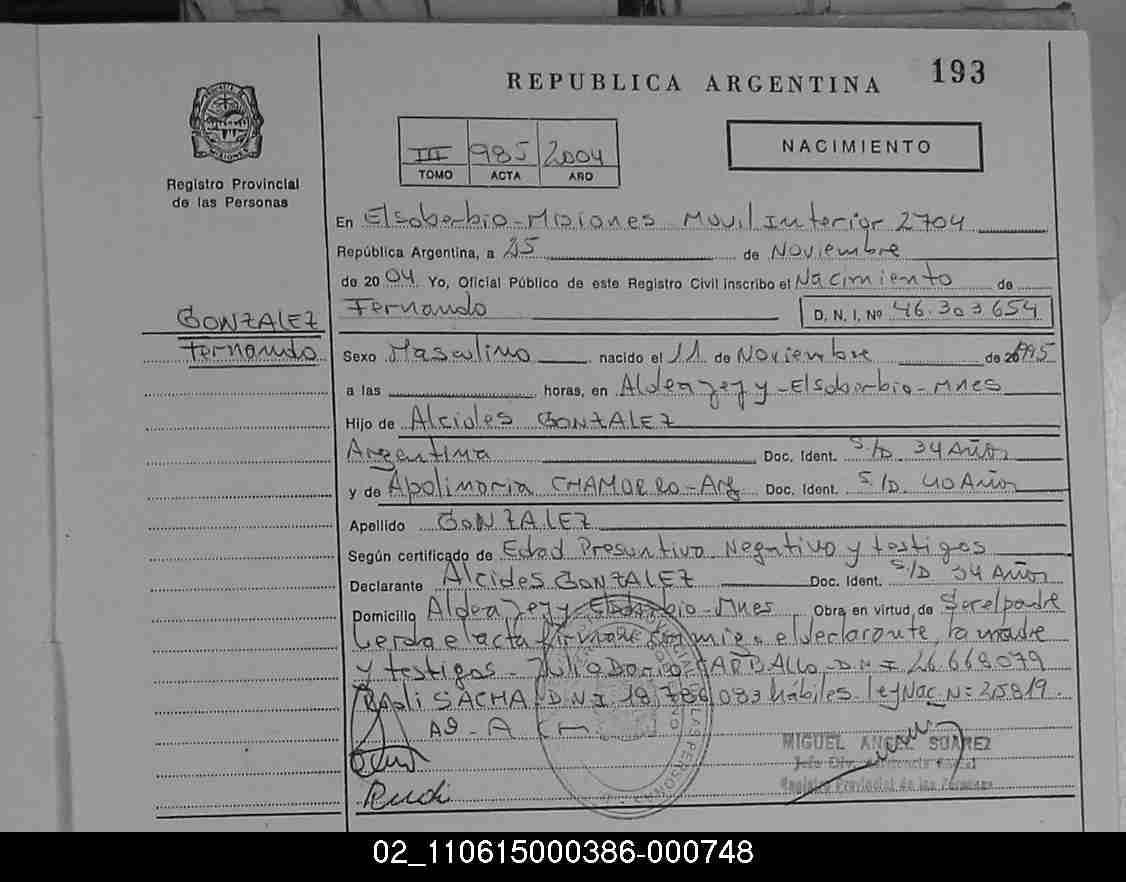 193
REPUBLICA ARGENTINA
NACIMIENTO
III 985 2004
TOMO ACTA AÑO
Registro Provincial
de las Personas
En Elsoberbio-Misiones Movil Interior 2704
República Argentina, a 25 de Noviembre
de 2004 Yo, Oficial Público de este Registro Civil inscribo el Nacimiento de
Fernando D. N. I. Nº 46.303.654
GONZALEZ
Fernando
Sexo Masculino nacido el 11 de Noviembre de 1995
a las horas, en Aldea - Elsoberbio - Mnes
Hijo de Alcides GONZALEZ
Argentina Doc. Ident. S/D. 34 Años
y de Apolinaria CHAMORRO-Arg Doc. Ident. S/D. 40 Años
Apellido GONZALEZ
Según certificado de Edad Presuntiva Negativo y testigos
Declarante Alcides GONZALEZ Doc. Ident. S/D 34 Años
Domicilio Aldea Elsoberbio-Mnes Obra en virtud de Ser el padre
Leida el acta firman conmigo el declarante, la madre
y testigos - Julio CARBALLO - D.N.I 26.668.079
SACHA D.N.I. 18.786.083 hábiles. Ley Nac. Nº 25819.
MIGUEL ANGEL SUAREZ
Registro Provincial de las Personas
02_110615000386-000748